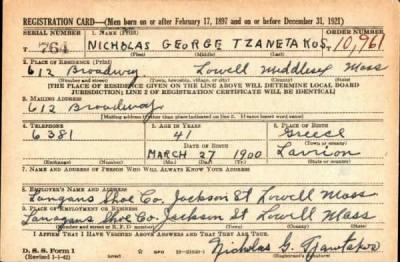 REGISTRATION CARD—(Men born on or after February 17, 1897 and on or before December 31, 1921)
SERIAL NUMBER 1. NAME (Print) ORDER NUMBER
T 764 NICHOLAS GEORGE TZANETAKOS 10,961
(First) (Middle) (Last)
2. PLACE OF RESIDENCE (Print)
612 Broadway Lowell Middlesex Mass
(Number and street) (Town, township, village, or city) (County) (State)
[THE PLACE OF RESIDENCE GIVEN ON THE LINE ABOVE WILL DETERMINE LOCAL BOARD
JURISDICTION; LINE 2 OF REGISTRATION CERTIFICATE WILL BE IDENTICAL]
3. MAILING ADDRESS
612 Broadway
(Mailing address if other than place indicated on line 2. If same insert word same)
4. TELEPHONE 5. AGE IN YEARS 6. PLACE OF BIRTH
6381 41 Greece
DATE OF BIRTH (Town or county)
MARCH 27 1900 Lavrion
(Exchange) (Number) (Mo.) (Day) (Yr.) (State or country)
7. NAME AND ADDRESS OF PERSON WHO WILL ALWAYS KNOW YOUR ADDRESS
8. EMPLOYER'S NAME AND ADDRESS
Langans Shoe Co. Jackson St Lowell Mass
9. PLACE OF EMPLOYMENT OR BUSINESS
Lanagans Shoe Co. Jackson St Lowell Mass
(Number and street or R. F. D. number) (Town) (County) (State)
I AFFIRM THAT I HAVE VERIFIED ABOVE ANSWERS AND THAT THEY ARE TRUE.
D. S. S. Form 1
(Revised 1-1-42) GPO Nicholas G. Tzanetakos
(Registrant's signature)